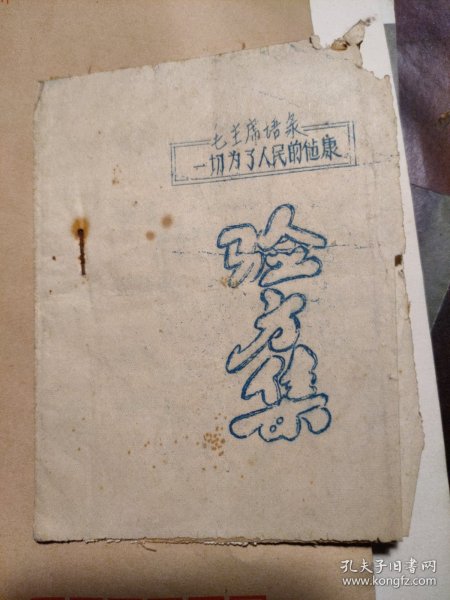 毛主席语录
一切为了人民的健康
验方集
孔夫子旧书网
www.kongfz.com